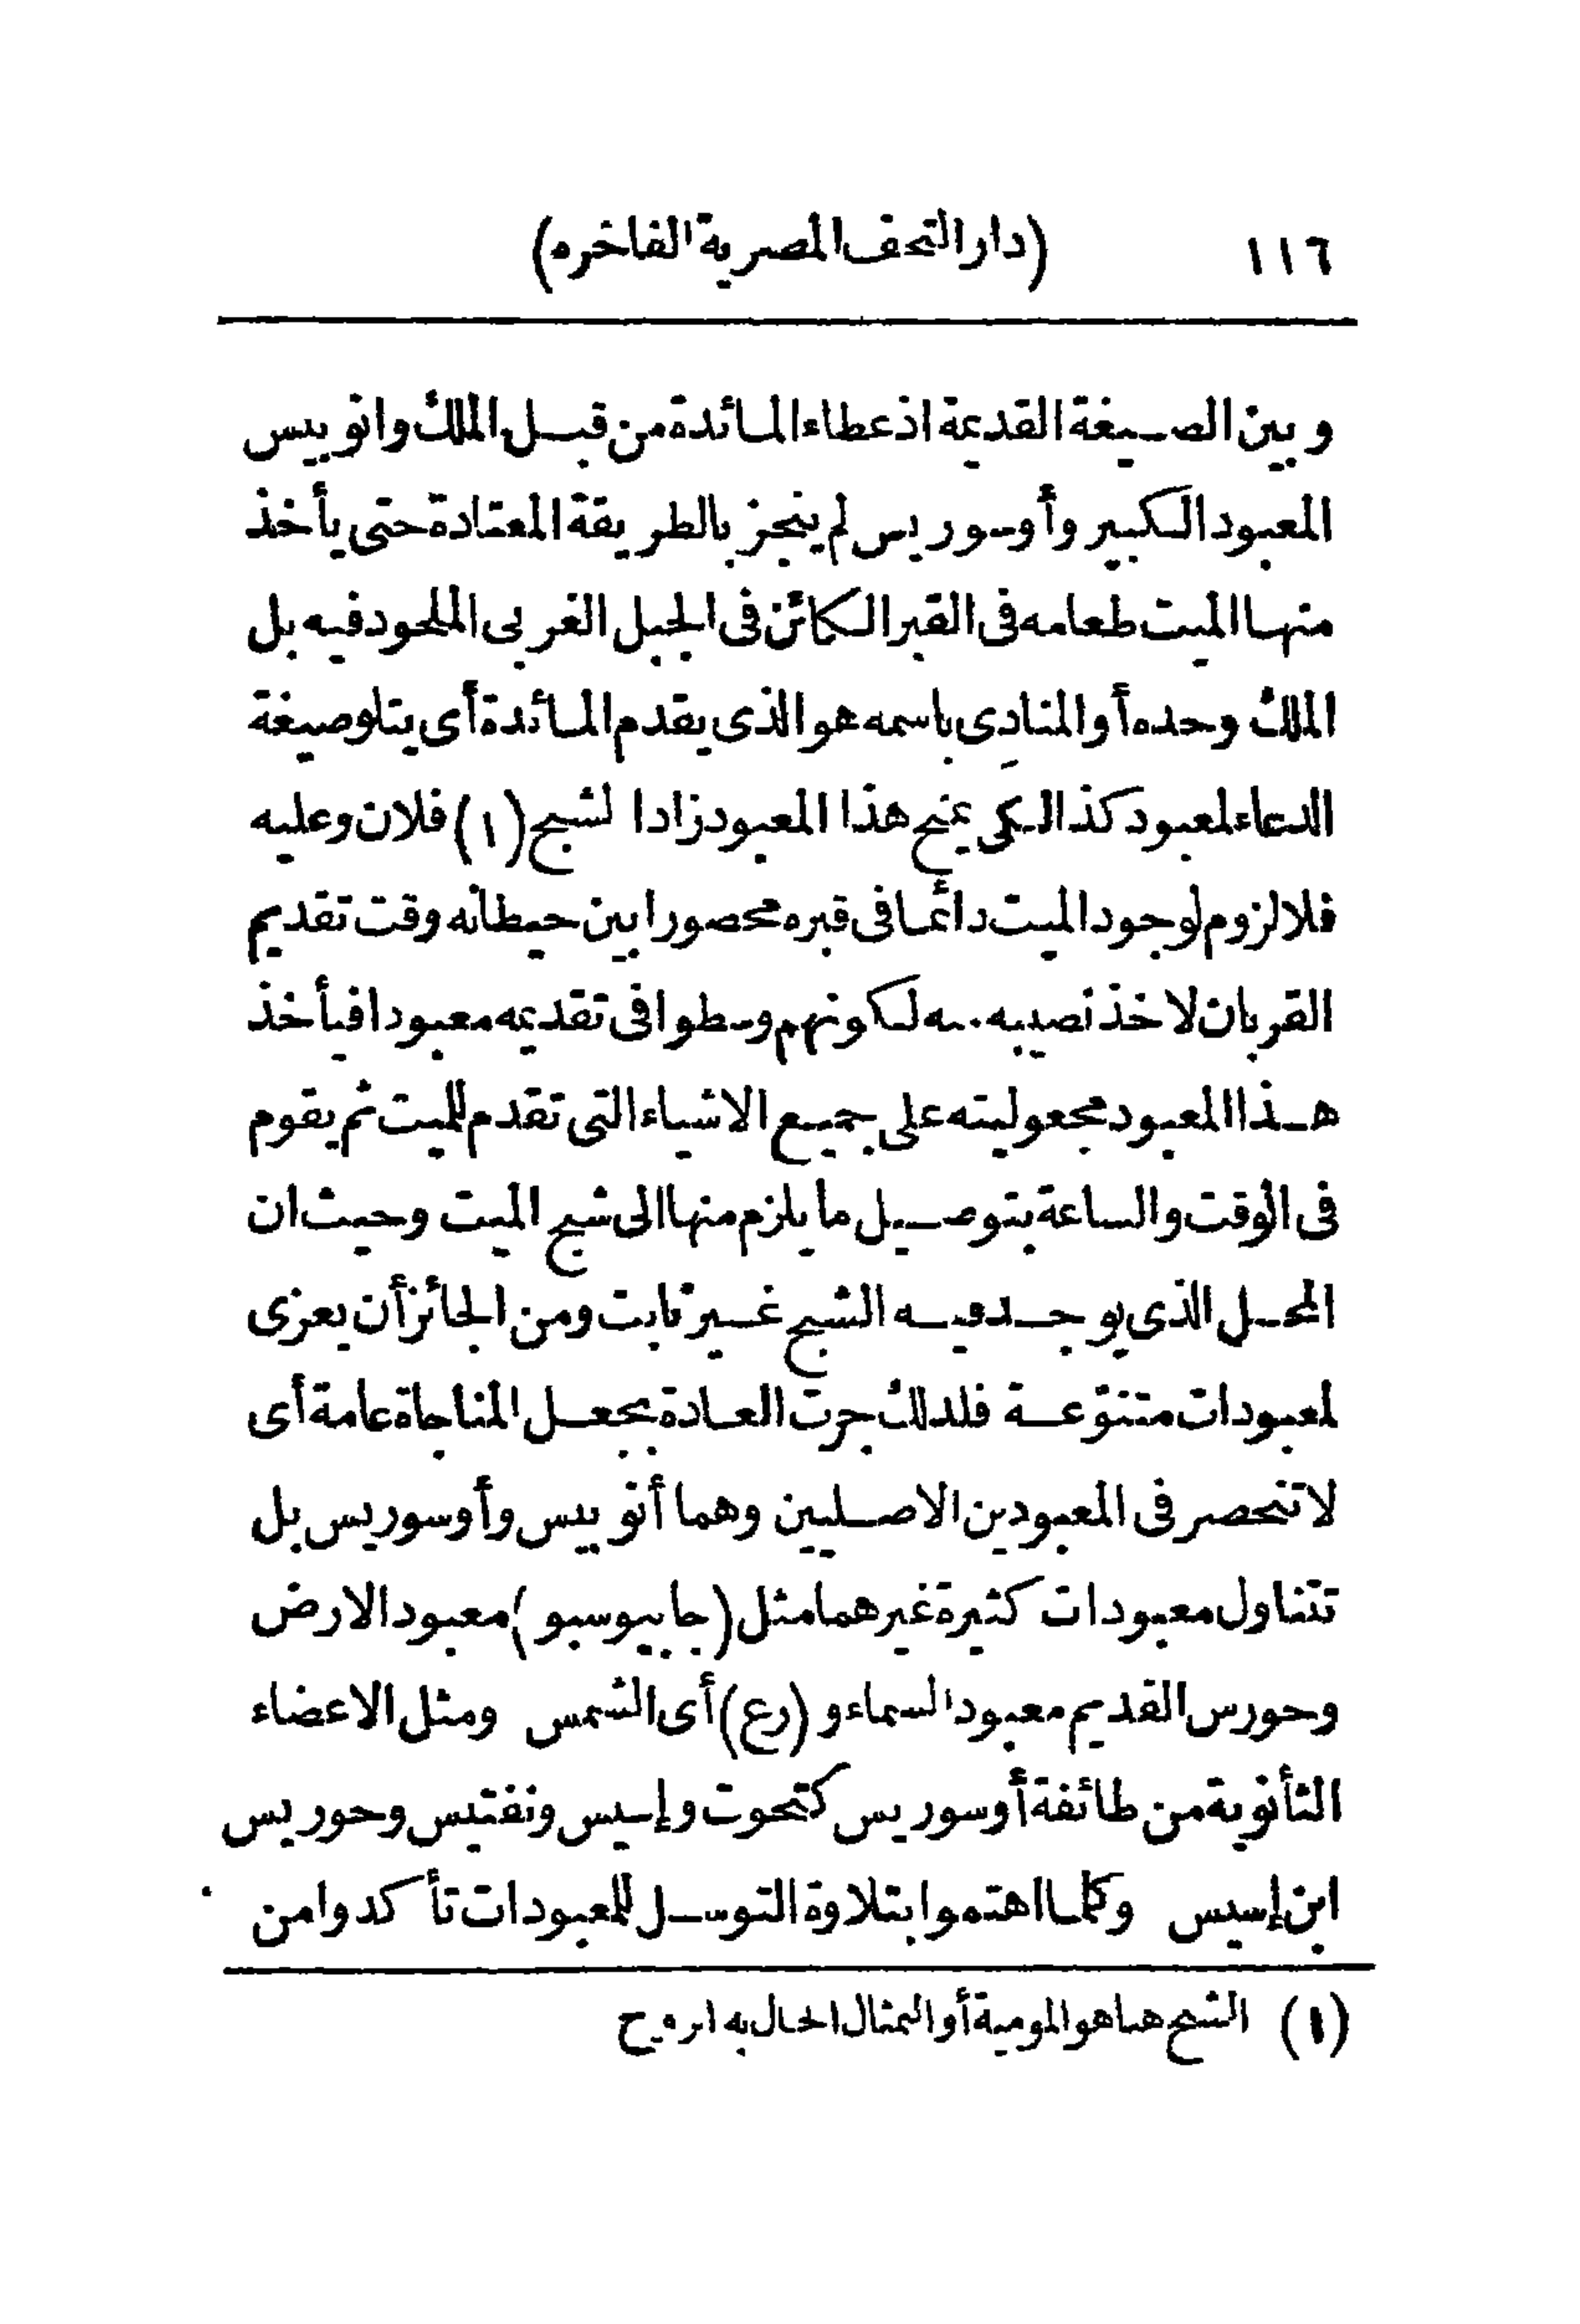 ١١٦ (دار التحف المصرية الفاخره)
وبين الصيغة القديمة اذ عطاء المائدة من قبل الملك وانوبيس
المعبود الكبير وأوسوريس لم ينجز بالطريقة المعتادة حتى يأخذ
منها الميت طعامه فى القبر الكائن فى الجبل الغربى الملحود فيه بل
الملك وحده أو المنادِى باسمه هو الذى يقدم المائدة أى يتلو صيغة
الدعاء لمعبود كذا لكى يمنح هذا المعبود زادا لشبح (١) فلان وعليه
فلا لزوم لوجود الميت دائما فى قبره محصورا بين حيطانه وقت تقديم
القربان لاخذ نصيبه منه لكونهم وسطوا فى تقديمه معبودا فيأخذ
هذا المعبود مجعوليته على جميع الاشياء التى تقدم للميت ثم يقوم
فى الوقت والساعة بتوصيل ما يلزم منها الى شبح الميت وحيث ان
المحل الذى يوجد فيه الشبح غير ثابت ومن الجائز أن يعزى
لمعبودات متنوّعة فلذلك جرت العادة بجعل المناجاة عامة أى
لا تنحصر فى المعبودين الاصليين وهما أنوبيس وأوسوريس بل
تتناول معبودات كثيرة غيرهما مثل (جابيوسبو) معبود الارض
وحورس القديم معبود السماء و (رع) أى الشمس ومثل الاعضاء
الثأنوية من طائفة أوسوريس كتحوت وإسيس ونفتيس وحوريس
ابن إسيس وكلما اهتموا بتلاوة التوسل للمعبودات تأكدوا من
(١) الشبح هنا هو المومية أو التمثال الحال به الروح